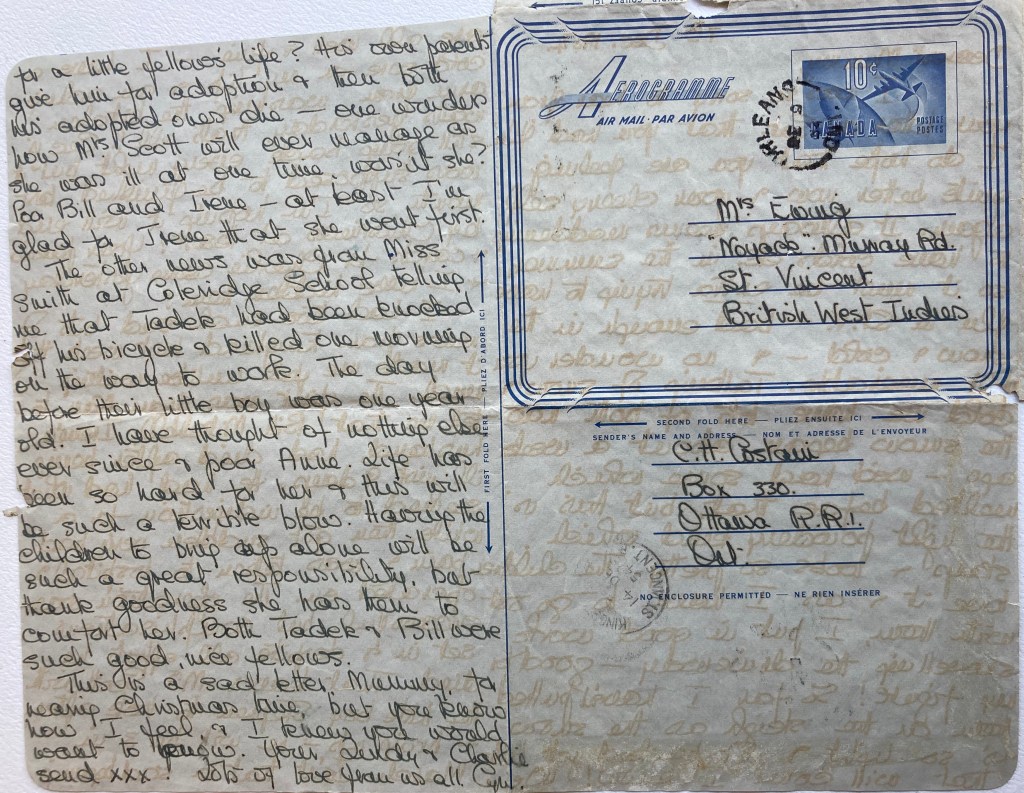 for a little fellow's life? His own parents
give him for adoption & then both
his adopted ones die — one wonders
how Mrs Scott will ever manage as
she was ill at one time, wasn't she?
Poor Bill and Irene — at least I'm
glad for Irene that she went first.
The other news was from Miss
Smith at Coleridge School telling
me that Tadek had been knocked
off his bicycle & killed one morning
on the way to work. The day
before their little boy was one year
old. I have thought of nothing else
ever since & poor Anne. Life has
been so hard for her & this will
be such a terrible blow. Having the
children to bring up alone will be
such a great responsibility, but
thank goodness she has them to
comfort her. Both Tadek & Bill were
such good, nice fellows.
This is a sad letter, Mummy, for
nearing Christmas time, but you know
how I feel & I knew you would
want to know. Your Lindy & Charlie
send xxx! Lots of love from us all.
FIRST FOLD HERE — PLIEZ D'ABORD ICI
AEROGRAMME
AIR MAIL · PAR AVION
10¢
CANADA
POSTAGE
POSTES
ORLEANS
Mrs Ewing
"Noyack" Murray Rd.
St. Vincent
British West Indies
SECOND FOLD HERE — PLIEZ ENSUITE ICI
SENDER'S NAME AND ADDRESS — NOM ET ADRESSE DE L'ENVOYEUR
C.H.
Box 330.
Ottawa R.R.1.
Ont.
NO ENCLOSURE PERMITTED — NE RIEN INSÉRER
ST. VINCENT